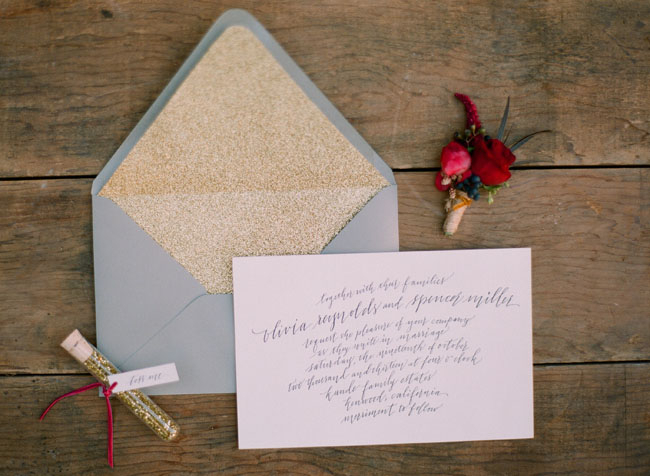 together with their families
olivia reynolds and spencer miller
request the pleasure of your company
as they unite in marriage
saturday, the nineteenth of october
two thousand and thirteen at four o'clock
kunde family estates
kenwood, california
merriment to follow
toss me